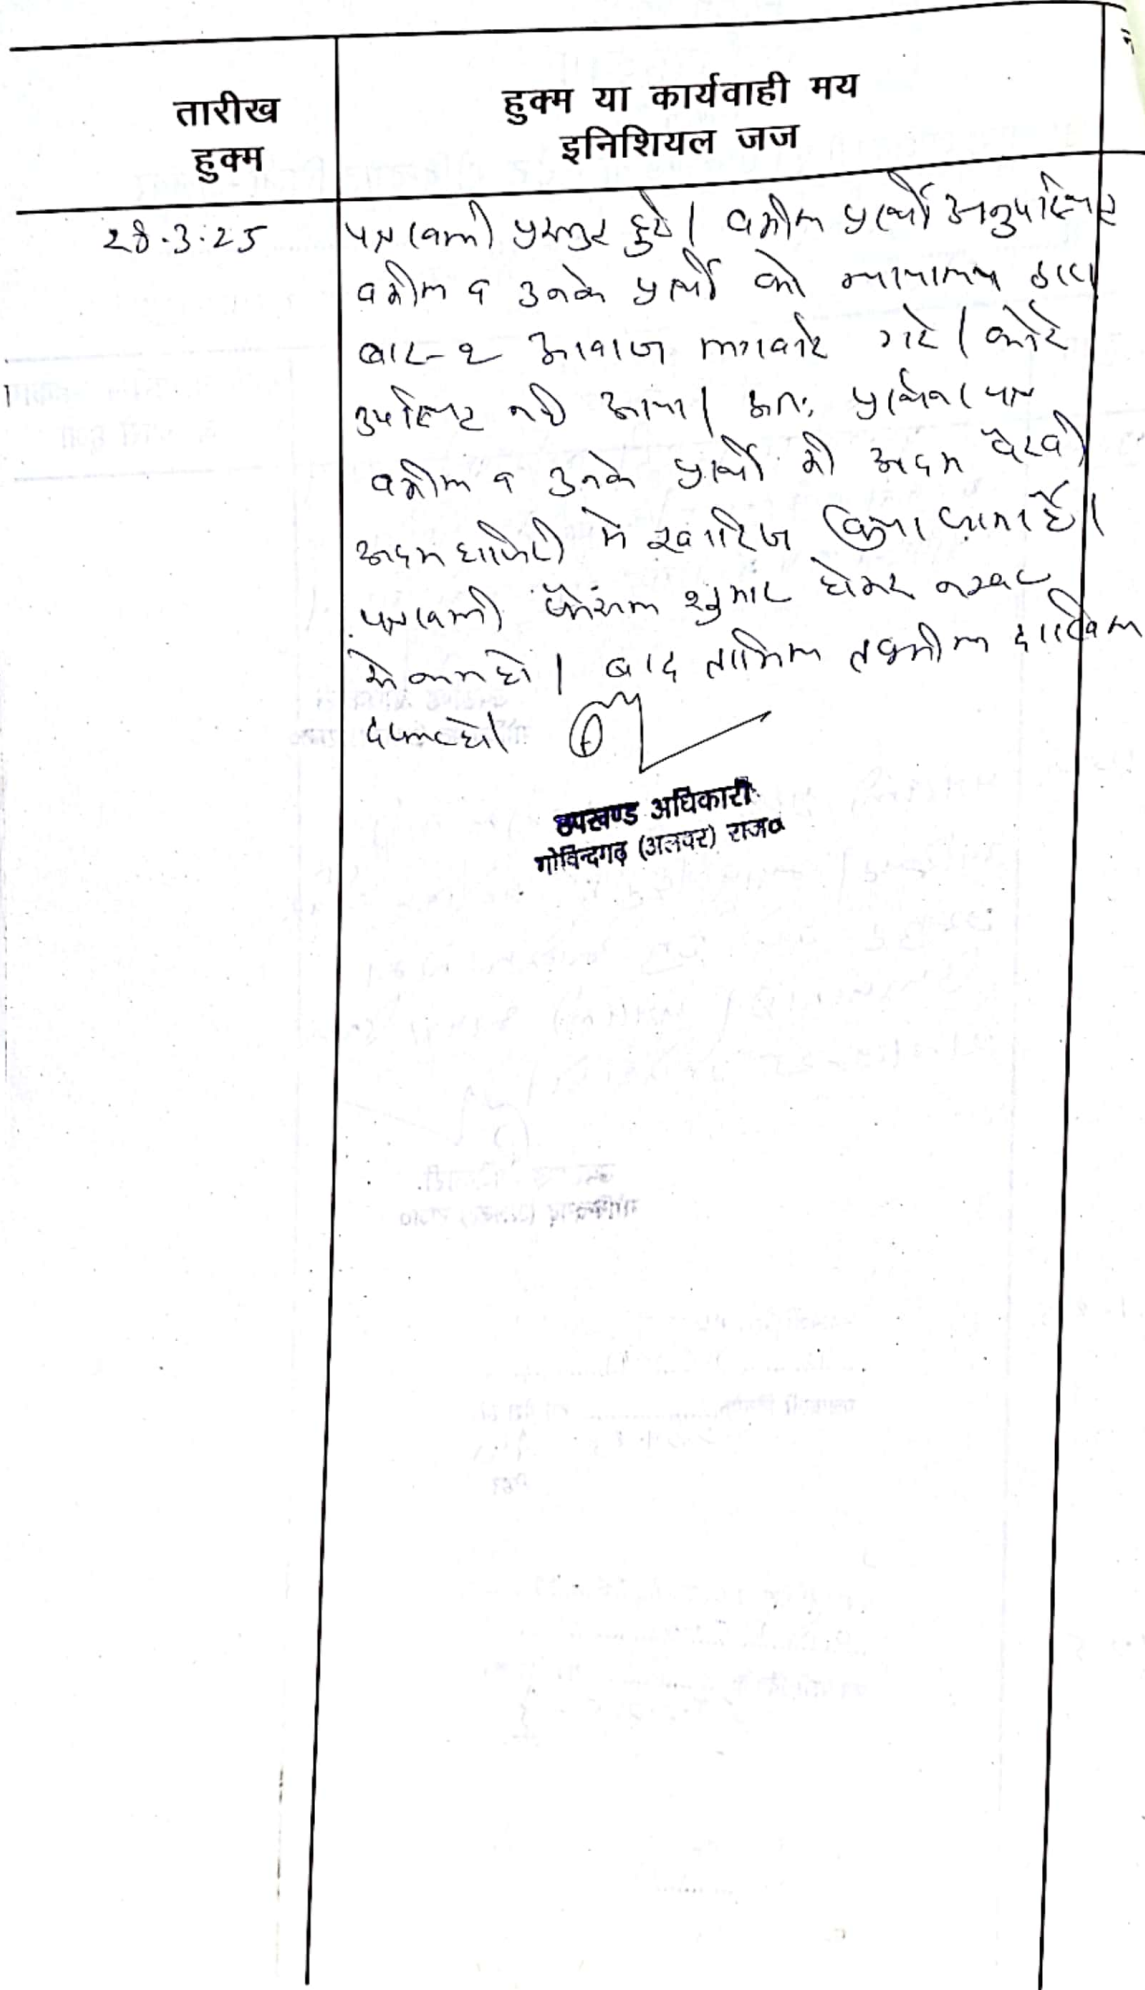 तारीख
हुक्म
हुक्म या कार्यवाही मय
इनिशियल जज
28.3.25
पत्रावली प्रस्तुत हुये। वकील प्रार्थी अनुपस्थित
वकील व उनके प्रार्थी को न्यायालय द्वारा
बार-२ आवाज लगवाई गई। कोई
उपस्थित नहीं आया। अतः प्रार्थना पत्र
वकील व उनके प्रार्थी की अदम पैरवी
अदम हाजिरी में खारिज किया जाता है।
पत्रावली फैसल शुमार होकर नम्बर
से कम हो। बाद तामिल तकमील दाखिल
दफ्तर हो।
उपखण्ड अधिकारी
गोविन्दगढ़ (अलवर) राज०